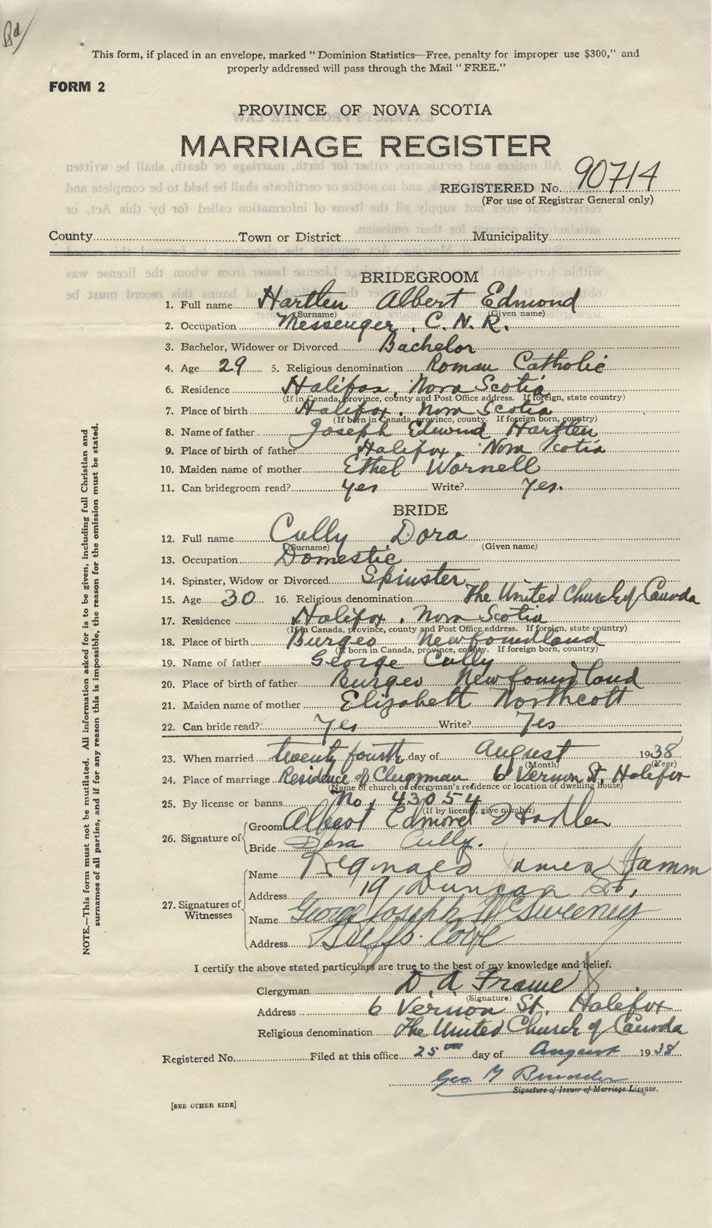 This form, if placed in an envelope, marked "Dominion Statistics—Free, penalty for improper use $300," and
properly addressed will pass through the Mail "FREE."
FORM 2
PROVINCE OF NOVA SCOTIA
MARRIAGE REGISTER
REGISTERED No. 90714
(For use of Registrar General only)
County Town or District Municipality
BRIDEGROOM
1. Full name Hartlen Albert Edmond
(Surname) (Given name)
2. Occupation Messenger, C.N.R.
3. Bachelor, Widower or Divorced Bachelor
4. Age 29 5. Religious denomination Roman Catholic
6. Residence Halifax, Nova Scotia
(If in Canada, province, county and Post Office address. If foreign, state country)
7. Place of birth Halifax, Nova Scotia
(If born in Canada, province, county. If foreign born, country)
8. Name of father Joseph Edmund Hartlen
9. Place of birth of father Halifax, Nova Scotia
10. Maiden name of mother Ethel Wornell
11. Can bridegroom read? Yes Write? Yes.
BRIDE
12. Full name Cully Dora
(Surname) (Given name)
13. Occupation Domestic
14. Spinster, Widow or Divorced Spinster
15. Age 30 16. Religious denomination The United Church of Canada
17. Residence Halifax, Nova Scotia
(If in Canada, province, county and Post Office address. If foreign, state country)
18. Place of birth Burgeo Newfoundland
(If born in Canada, province, county. If foreign born, country)
19. Name of father George Cully
20. Place of birth of father Burgeo Newfoundland
21. Maiden name of mother Elizabeth Northcott
22. Can bride read? Yes Write? Yes
23. When married twenty fourth day of August 1938
(Month) (Year)
24. Place of marriage Residence of Clergyman 6 Vernon St, Halifax
(Name of church or clergyman's residence or location of dwelling house)
25. By license or banns No. 43054
(If by license, give number)
26. Signature of
Groom Albert Edmond Hartlen
Bride Dora Cully.
27. Signatures of Witnesses
Name Reginald James Hamm
Address 19 Duncan St,
Name George Joseph McSweeney
Address Cove
I certify the above stated particulars are true to the best of my knowledge and belief.
Clergyman D. A. Frame
(Signature)
Address 6 Vernon St. Halifax
Religious denomination The United Church of Canada
Registered No. Filed at this office 25th day of August 1938
Geo
Signature of Issuer of Marriage License.
[SEE OTHER SIDE]
NOTE.—This form must not be mutilated. All information asked for is to be given, including full Christian and
surnames of all parties, and if for any reason this is impossible, the reason for the omission must be stated.